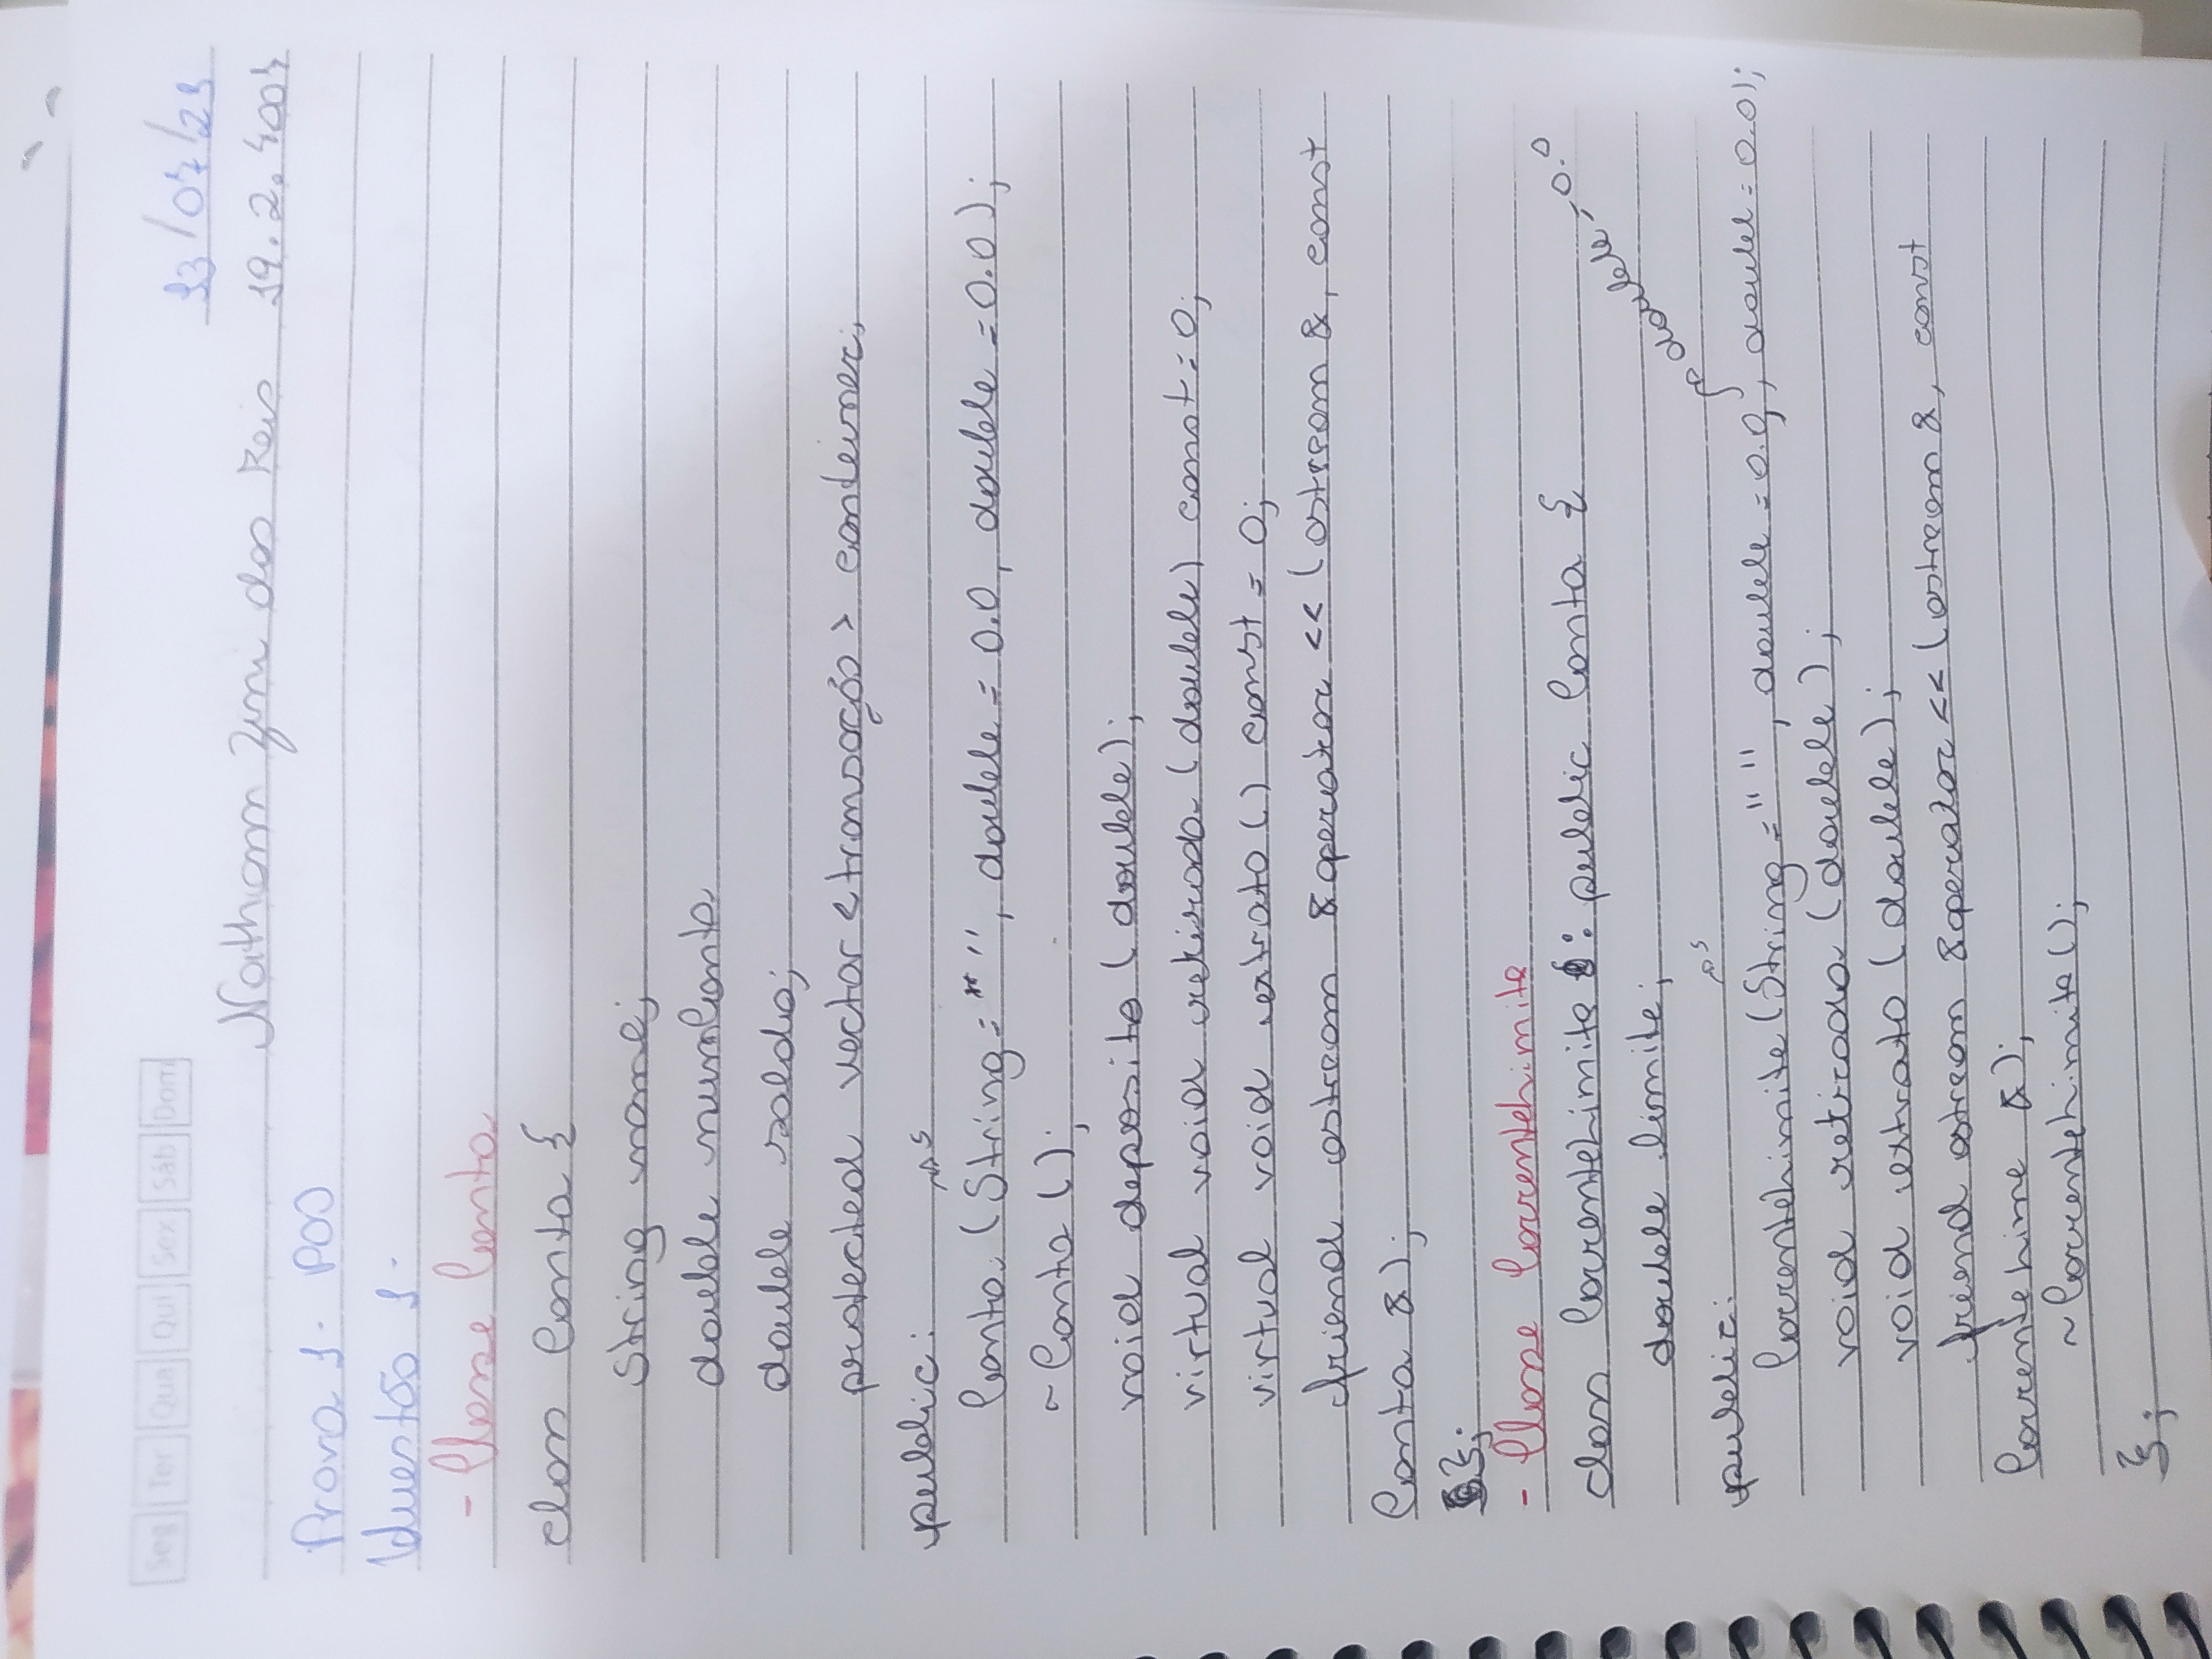 Seg Ter Qua Qui Sex Sáb Dom
13/07/21
Nathann Zini dos Reis 19.2.4007
Prova 1- POO
Questão 1-
- Classe Conta
class Conta {
String nome;
double numConta
double saldo;
protected vector <transação> conteiner;
public: s
Conta (String = "", double = 0.0, double = 0.0);
~ Conta ();
void deposito (double);
virtual void retirada (double) const = 0;
virtual void extrato () const = 0;
friend ostream &operator << (ostream &, const
Conta &);
};
- Classe CorrenteLimite
class CorrenteLimite : public Conta {
double limite;
double = 0.0
public: s
CorrenteLimite (String = "", double = 0.0, , double = 0.0);
void retirada (double);
void extrato (double);
friend ostream &operator << (ostream &, const
CorrenteLime &);
~ CorrenteLimite ();
};